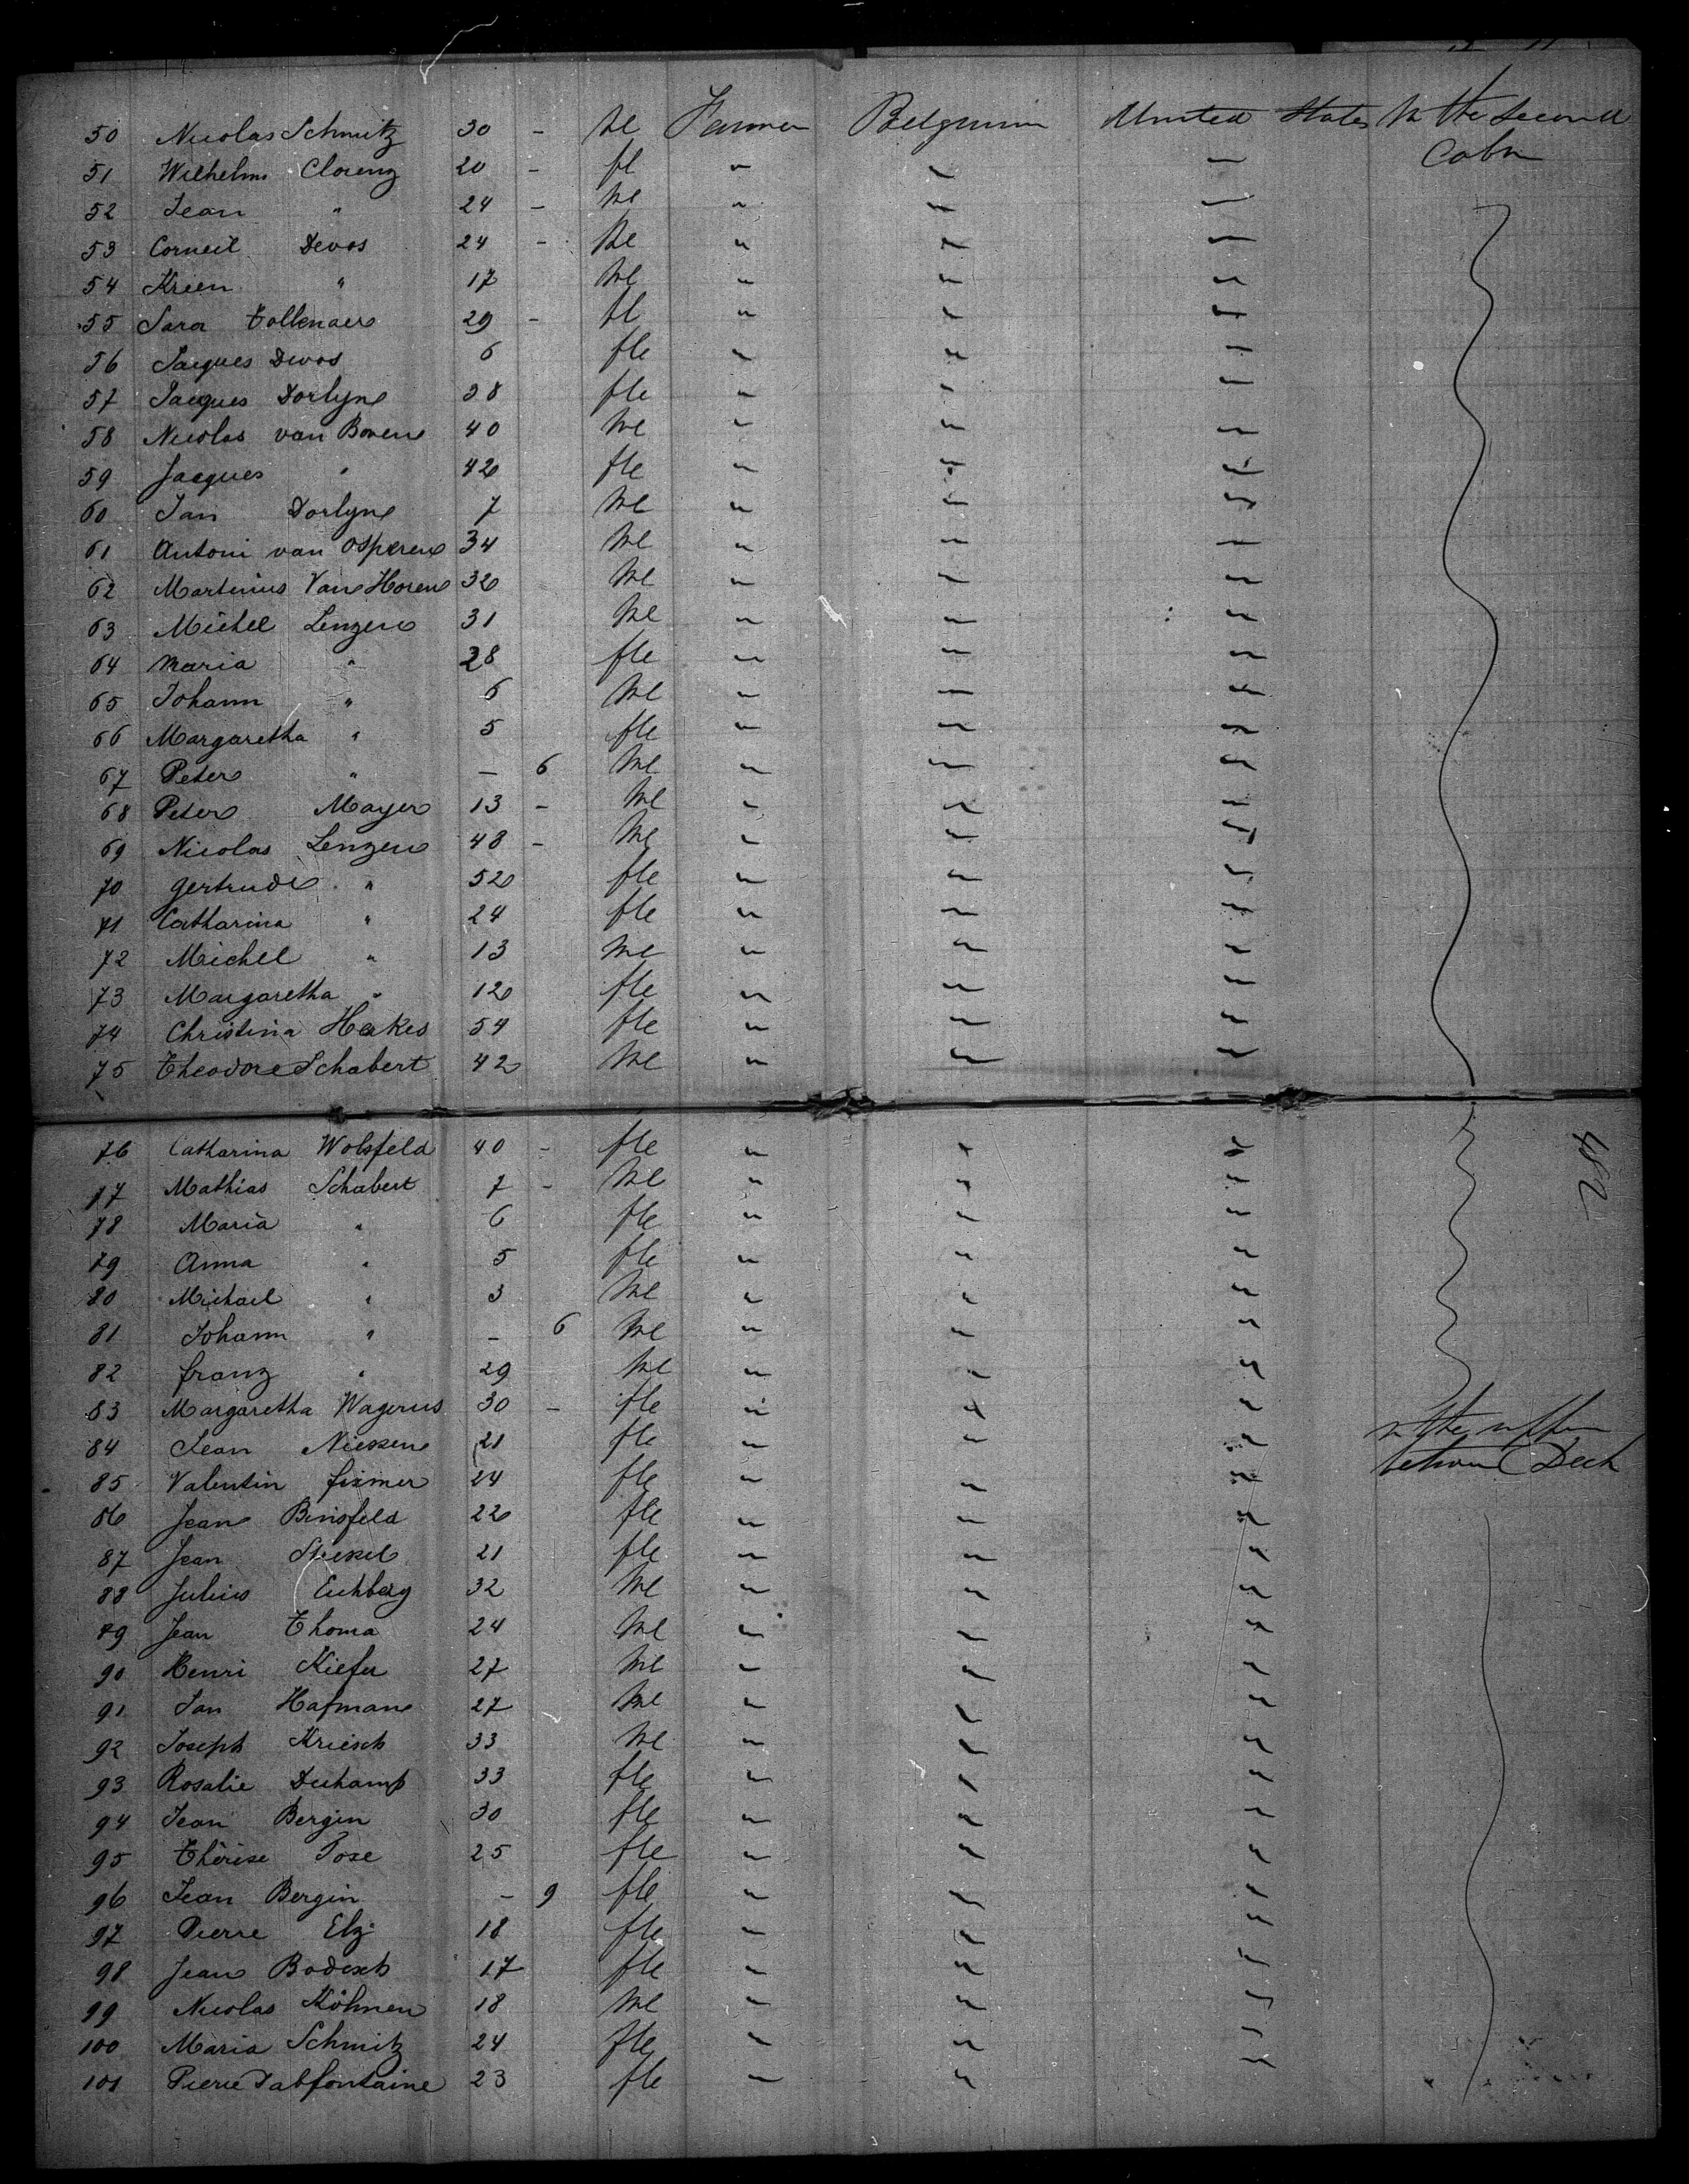 50 Nicolas Schmitz 30 - Me Farmer Belgium United States In the Second
51 Wilhelm Clorenz 20 - fl " " " Cabin
52 Jean " 24 - Me " " "
53 Corneil Devos 24 - Me " " "
54 Krien " 17 Me " " "
55 Sara Tollenaers 29 - fl " " "
56 Jacques Devos 6 fle " " "
57 Jacques Dorlyne 38 fle " " "
58 Nicolas van Boven 40 Me " " "
59 Jacques " 42 fle " " "
60 Jan Dorlyne 7 Me " " "
61 Antoni van Osperen 34 Me " " "
62 Martinius Van Horen 32 Me " " "
63 Michel Lenzen 31 Me " " "
64 Maria " 28 fle " " "
65 Johann " 6 Me " " "
66 Margaretha " 5 fle " " "
67 Peter " - 6 Me " " "
68 Peter Mayer 13 - Me " " "
69 Nicolas Lenzen 48 - Me " " "
70 Gertrude " 52 fle " " "
71 Catharina " 24 fle " " "
72 Michel " 13 Me " " "
73 Margaretha " 12 fle " " "
74 Christina Hakes 54 fle " " "
75 Theodore Schabert 42 Me " " "
76 Catharina Wolsfeld 40 - fle " " "
482
77 Mathias Schabert 7 - Me " " "
78 Maria " 6 fle " " "
79 Anna " 5 fle " " "
80 Michael " 3 Me " " "
81 Johann " - 6 Me " " "
82 franz " 29 Me " " "
83 Margaretha Wagerius 30 - fle " " " In the upper
84 Jean Niesen 21 fle " " " between Deck
85 Valentin fixmer 24 fle " " "
86 Jean Binsfeld 22 fle " " "
87 Jean 21 fle " " "
88 Julius Eichberg 32 Me " " "
89 Jean Thoma 24 Me " " "
90 Henri Kiefer 27 Me " " "
91 Jan Hafman 27 Me " " "
92 Joseph Kriesch 33 Me " " "
93 Rosalie Duhamp 33 fle " " "
94 Jean Bergin 30 fle " " "
95 Thérèse Pose 25 fle " " "
96 Jean Bergin - 9 fle " " "
97 Pierre Elz 18 fle " " "
98 Jean Bodesch 17 fle " " "
99 Nicolas Köhnen 18 Me " " "
100 Maria Schmitz 24 fle " " "
101 Pierre Dabfontaine 23 fle " "